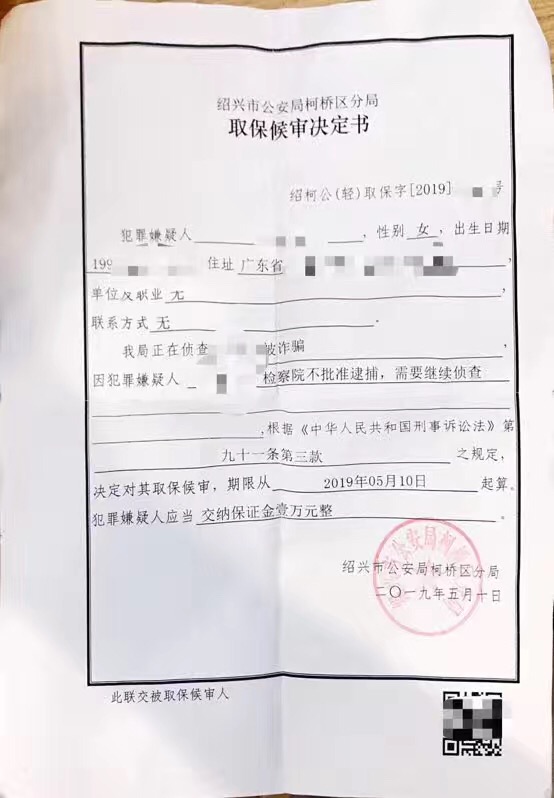 绍兴市公安局柯桥区分局
取保候审决定书
绍柯公(轻)取保字[2019] 号
犯罪嫌疑人 ,性别 女 ,出生日期
199 住址 广东省 ,
单位及职业 无 ,
联系方式 无 。
我局正在侦查 被诈骗 ,
因犯罪嫌疑人 检察院不批准逮捕,需要继续侦查
,根据《中华人民共和国刑事诉讼法》第
九十一条第三款 之规定,
决定对其取保候审,期限从 2019年05月10日 起算。
犯罪嫌疑人应当 交纳保证金壹万元整 。
绍兴市公安局柯桥区分局
二〇一九年五月一日
此联交被取保候审人